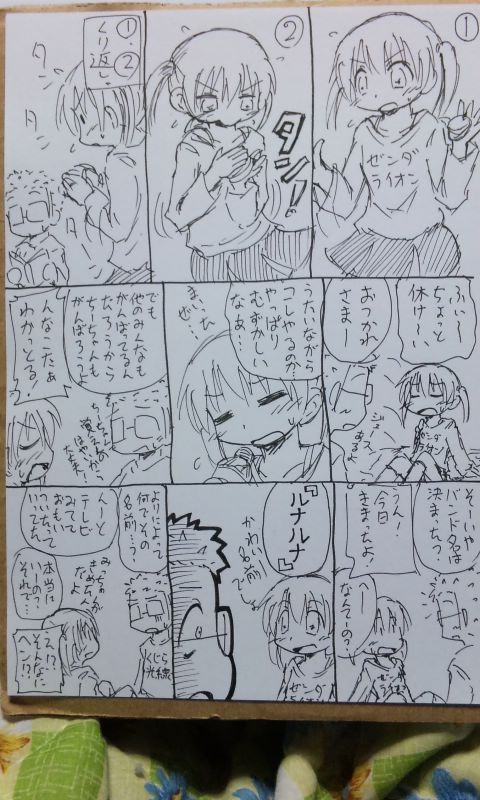 ①
ゼンダ
ライオン
②
タン!
①・②
くり返し
タン
タ
ふぃ〜
ちょっと
休け〜い
おつかれ
さまー
ジュース
あるよ
ゼンダ
ライオン
うたいながら
コレやるのか
やっぱり
むずかしい
なぁ…
まいった
でも
他のみんなも
がんばってるん
だろうから
ちーちゃんも
がんばろ?
んなこたぁ
わかっとる!
そーいや
バンド名は
決まった?
うん!
今日
きまったよ!
へー
なんての?
ゼンダ
ライオン
『ルナルナ』
かわいい名前
でしょ
ゼンダ
ライオン
よりによって
何でその
名前…?
んーと
テレビ
みてて
おもい
ついたって
いってた
きめたん
だよ
本当に
いーの?
それで…
え!?
そんなに
ヘン!?
くじら
光線